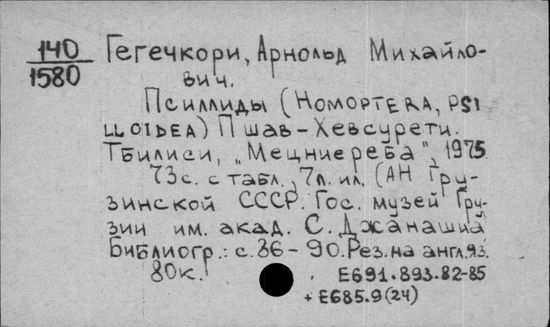 140
1580
Гегечкори, Арнольд Михайло-
вич.
Псиллиды (HOMOPTERA, PSI
LLOIDEA) Пшав-Хевсурети.
Тбилиси, „Мецниереба", 1975
73с. с табл., 7л. ил. (АН Гру-
зинской СССР. Гос. музей Гру-
зии им. акад. С. Джанашиа
Библиогр.: с. 86-90. Рез. на англ. яз.
80к.
Е691.893.82-85
+ Е685.9(24)